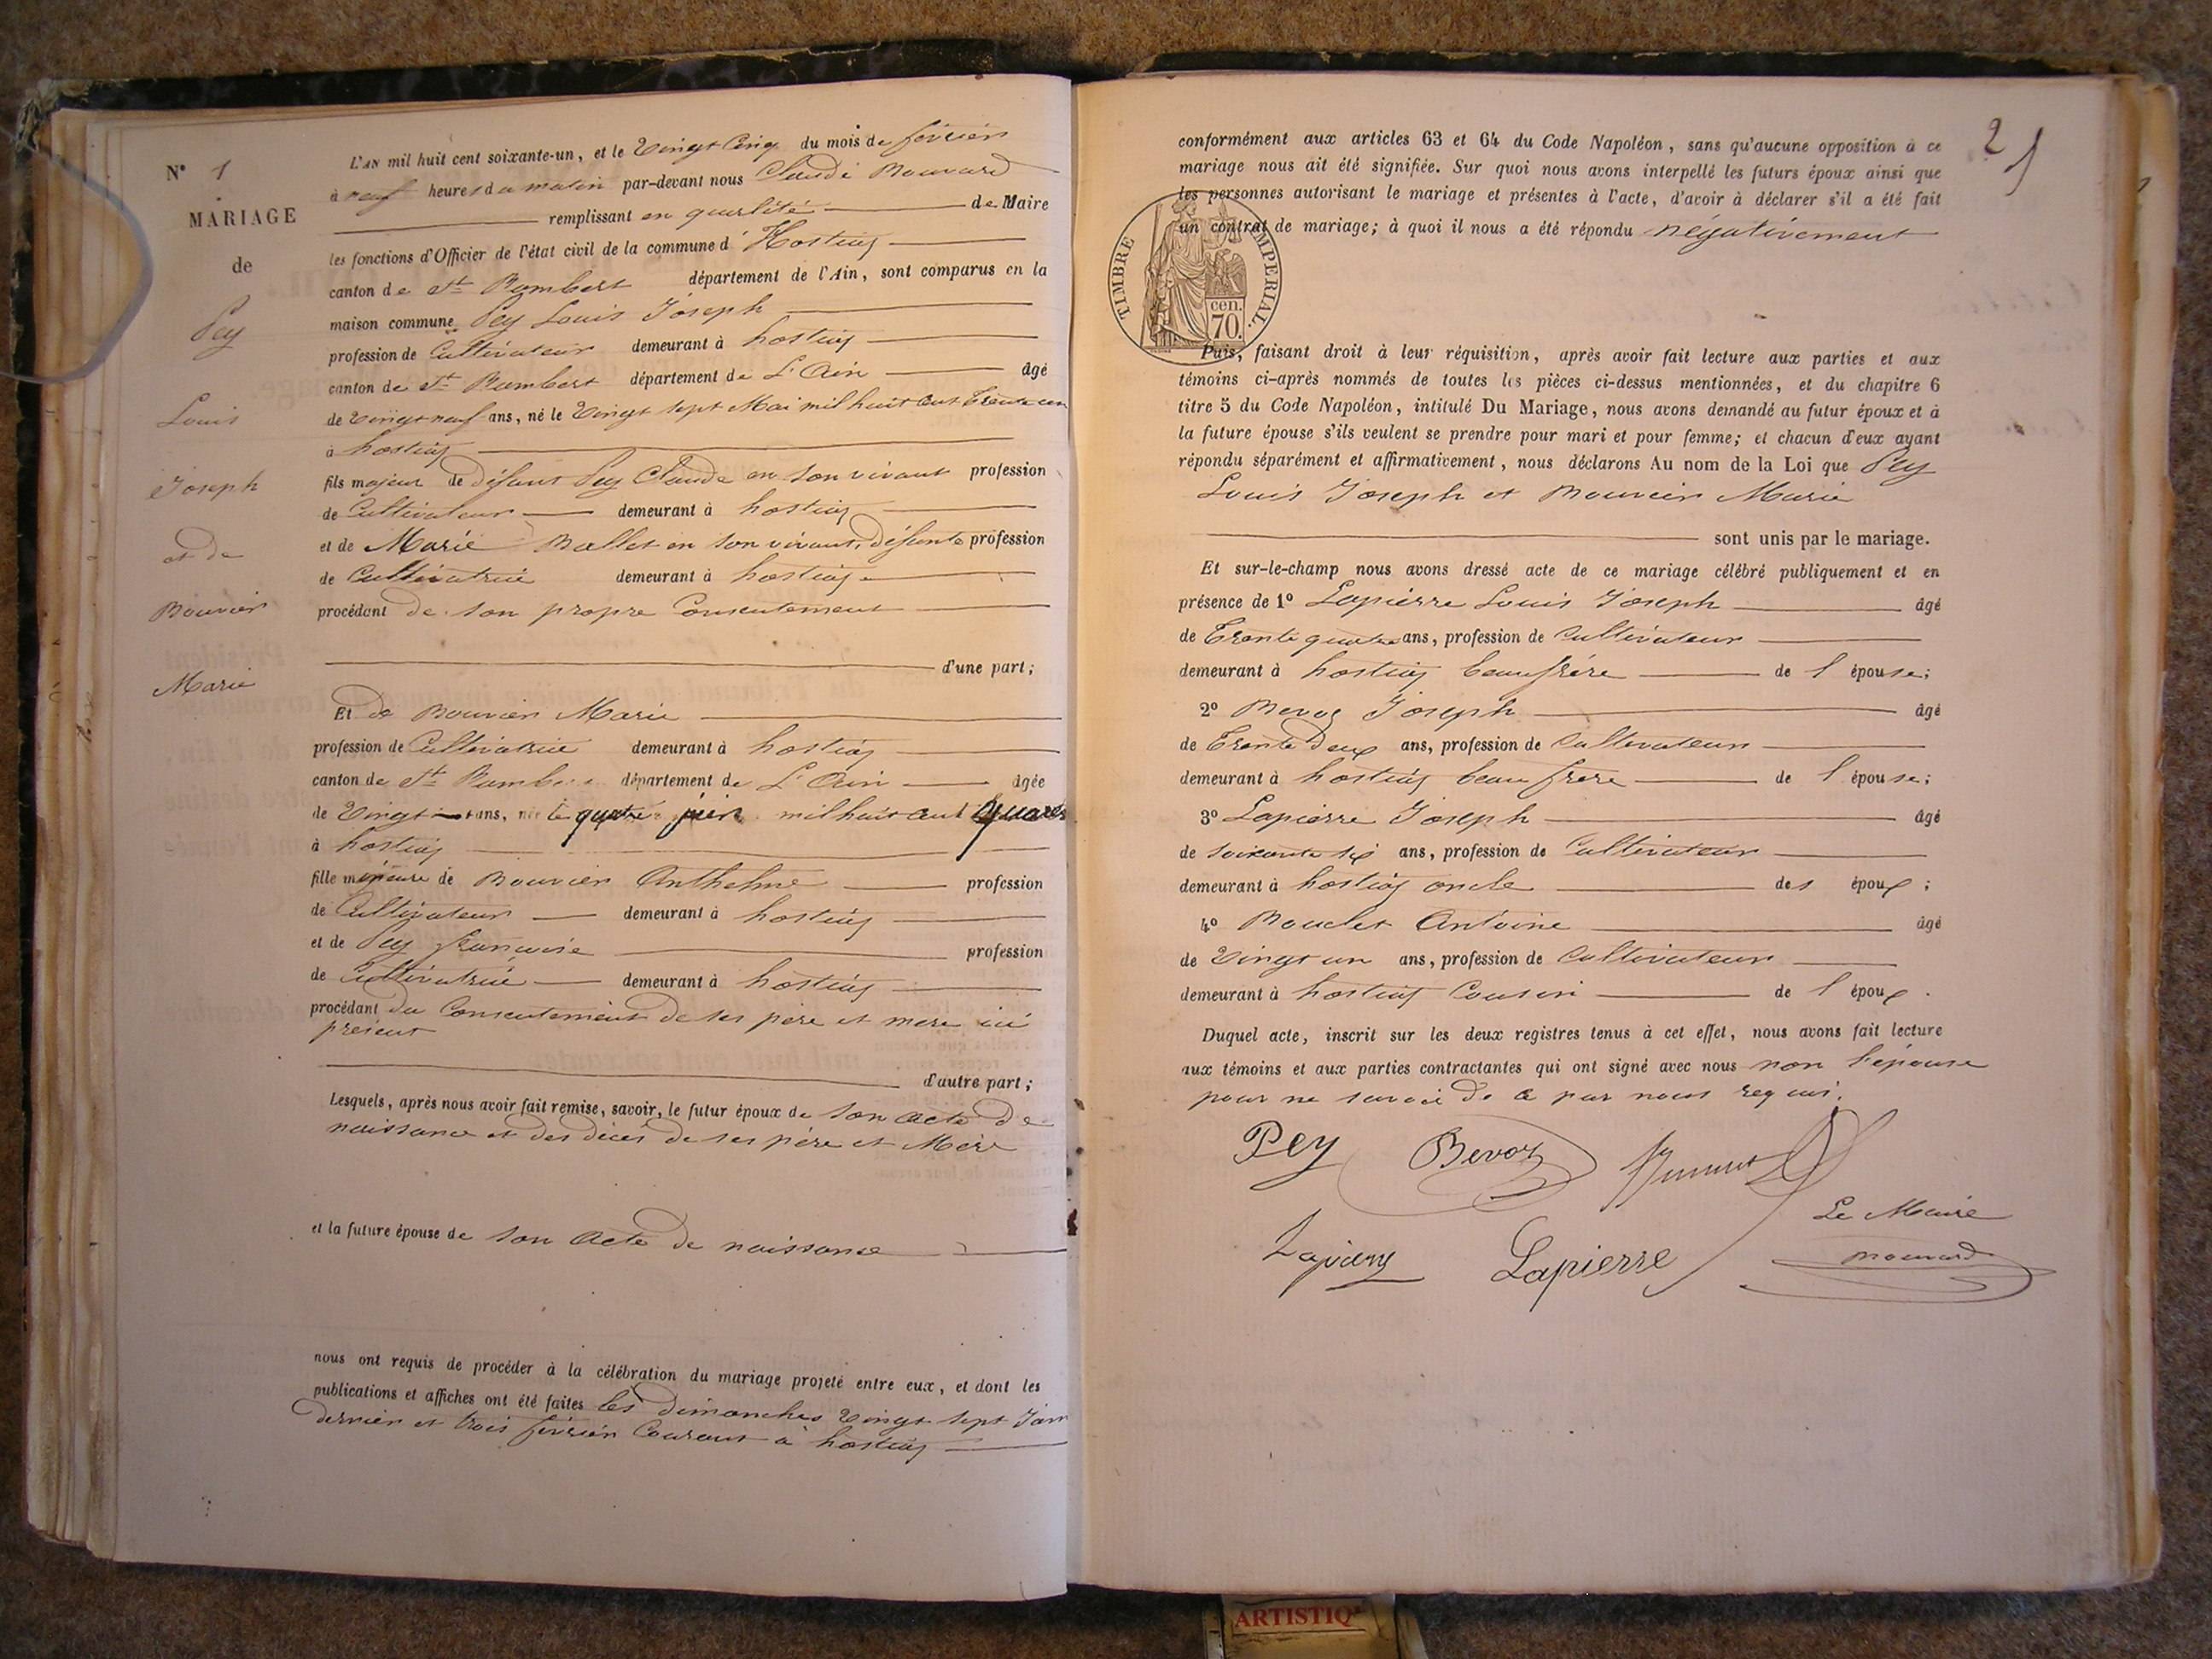 N° 1
MARIAGE
de
Pey
Louis
Joseph
et de
Bouvier
Marie
L'AN mil huit cent soixante-un, et le Vingt Cinq du mois de février
à neuf heures du matin par-devant nous Claude
remplissant en qualité de Maire
les fonctions d'Officier de l'état civil de la commune d' Hostiaz
canton de St Rambert département de l'Ain, sont comparus en la
maison commune Pey Louis Joseph
profession de Cultivateur demeurant à hostiaz
canton de St Rambert département de L'Ain âgé
de Vingt neuf ans, né le Vingt sept Mai mil huit cent Trente un
à hostiaz
fils majeur de défunt Pey Claude en son vivant profession
de Cultivateur demeurant à hostiaz
et de Marie Ballet en son vivant, défunte profession
de Cultivatrice demeurant à hostiaz
procédant de son propre Consentement
d'une part;
Et de Bouvier Marie
profession de Cultivatrice demeurant à hostiaz
canton de St Rambert département de L'Ain âgée
de Vingt ans, née le quatre juin mil huit cent quaran
à hostiaz
fille mineure de Bouvier Anthelme profession
de Cultivateur demeurant à hostiaz
et de Pey françoise profession
de Cultivatrice demeurant à hostiaz
procédant du Consentement de ses père et mère ici
présent
d'autre part;
Lesquels, après nous avoir fait remise, savoir, le futur époux de son acte de
naissance et des décès de ses père et Mère
et la future épouse de son acte de naissance
nous ont requis de procéder à la célébration du mariage projeté entre eux, et dont les
publications et affiches ont été faites les dimanches Vingt sept Jan
dernier et trois février Courant à hostiaz
2
conformément aux articles 63 et 64 du Code Napoléon, sans qu'aucune opposition à ce
mariage nous ait été signifiée. Sur quoi nous avons interpellé les futurs époux ainsi que
les personnes autorisant le mariage et présentes à l'acte, d'avoir à déclarer s'il a été fait
un contrat de mariage; à quoi il nous a été répondu négativement
TIMBRE IMPERIAL.
cen.
70.
Puis, faisant droit à leur réquisition, après avoir fait lecture aux parties et aux
témoins ci-après nommés de toutes les pièces ci-dessus mentionnées, et du chapitre 6
titre 5 du Code Napoléon, intitulé Du Mariage, nous avons demandé au futur époux et à
la future épouse s'ils veulent se prendre pour mari et pour femme; et chacun d'eux ayant
répondu séparément et affirmativement, nous déclarons Au nom de la Loi que Pey
Louis Joseph et Bouvier Marie
sont unis par le mariage.
Et sur-le-champ nous avons dressé acte de ce mariage célébré publiquement et en
présence de 1° Lapierre Louis Joseph âgé
de Trente quatre ans, profession de Cultivateur
demeurant à hostiaz beaufrère de l'épouse;
2° Bevoz Joseph âgé
de Trente deux ans, profession de Cultivateur
demeurant à hostiaz beau frère de l'épouse;
3° Lapierre Joseph âgé
de soixante six ans, profession de Cultivateur
demeurant à hostiaz oncle des époux;
4° Antoine âgé
de Vingt un ans, profession de Cultivateur
demeurant à hostiaz Cousin de l'époux.
Duquel acte, inscrit sur les deux registres tenus à cet effet, nous avons fait lecture
aux témoins et aux parties contractantes qui ont signé avec nous non l'épouse
pour ne savoir de ce par nous requis.
Pey Bevoz
Le Maire
Lapierre
ARTISTIQ